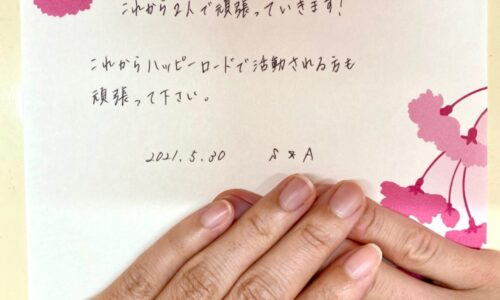 これから2人で頑張っていきます!
これからハッピーロードで活動される方も
頑張って下さい。
2021.5.30 S & A